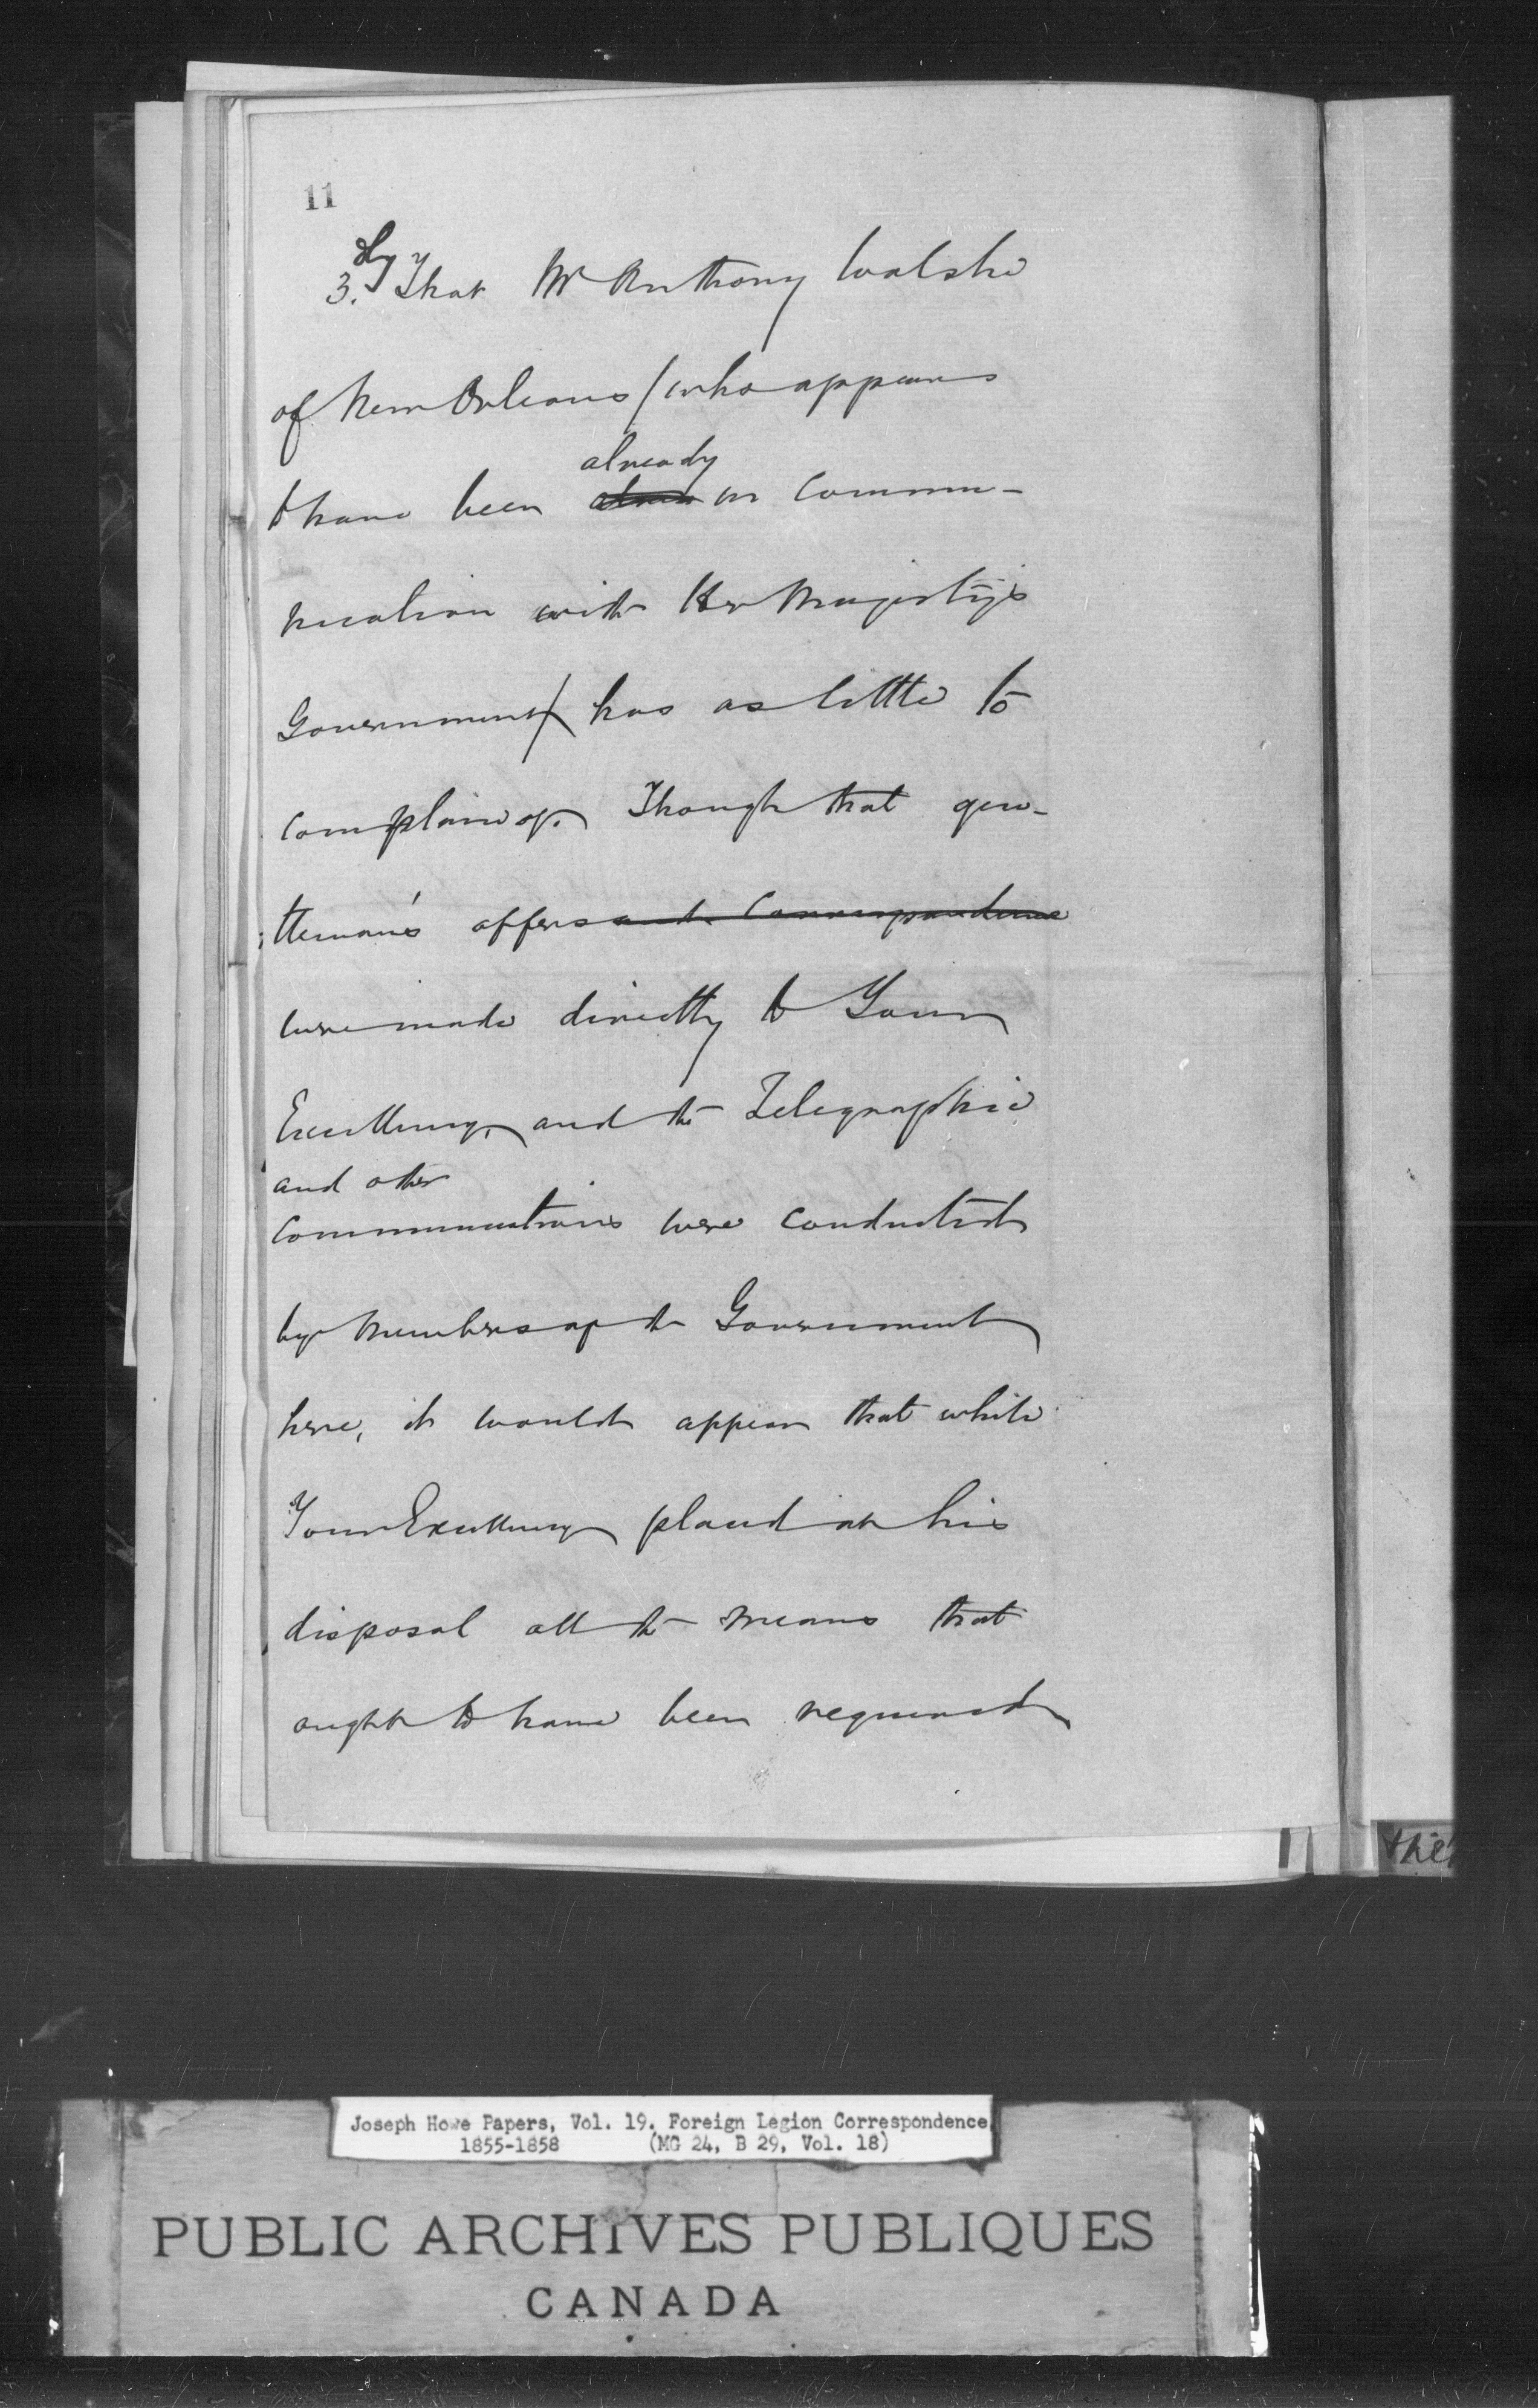 11
3.dly That Mr Anthony Walshe
of New Orleans / who appears
already
to have been in commu-
nication with Her Majesty's
Government / has as little to
complain of. Though that gen-
tleman's offers and Correspondence
were made directly to Your
Excellency, and the Telegraphic
and other
communications were conducted
by Members of the Government
here, it would appear that while
Your Excellency placed at his
disposal all the means that
ought to have been required
the
Joseph Howe Papers, Vol. 19. Foreign Legion Correspondence,
1855-1858 (MG 24, B 29, Vol. 18)
PUBLIC ARCHIVES PUBLIQUES
CANADA